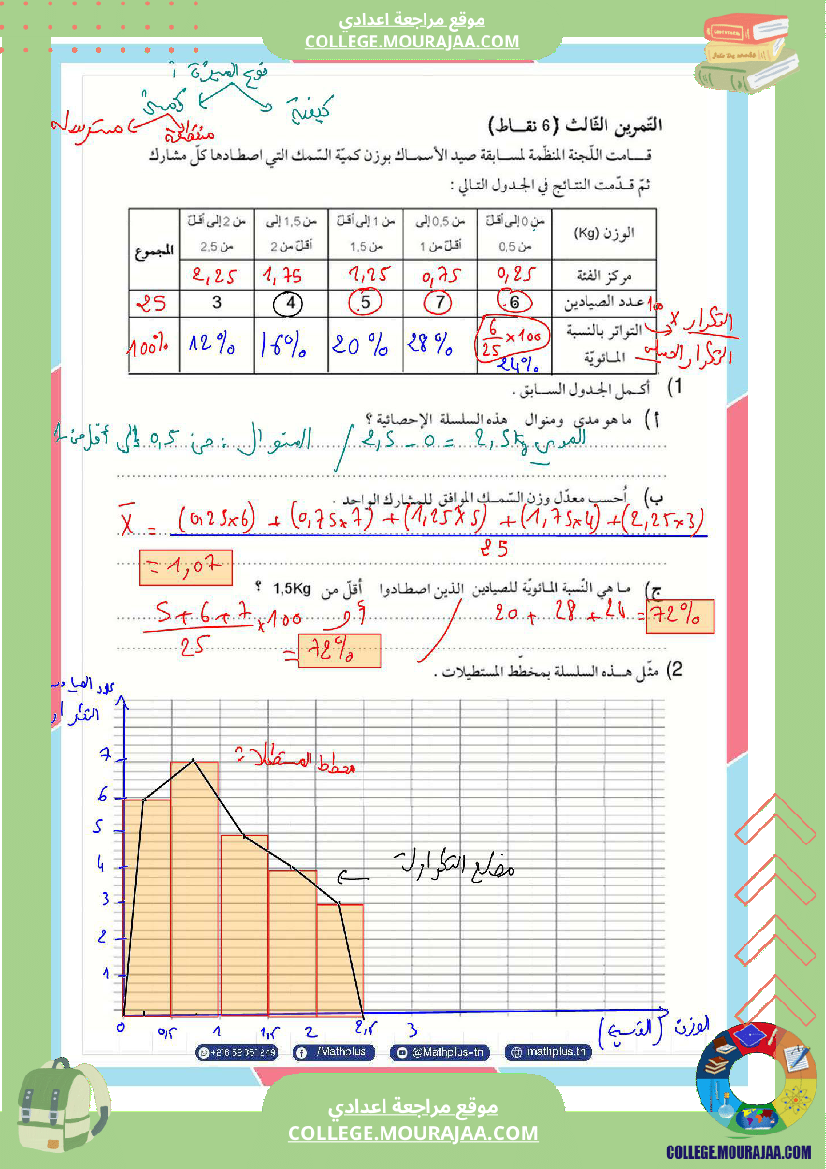 موقع مراجعة اعدادي
COLLEGE.MOURAJAA.COM
نوع الميزة ؟
كيفية
كمية
متقطعة
مسترسلة
التّمرين الثّالث (6 نقــاط)
قــامت اللّجنة المنظّمة لمسابقة صيد الأسماك بوزن كميّة السّمك التي اصطادها كلّ مشارك
ثمّ قدّمت النتائج في الجدول التالي :
الوزن (Kg) من 0 إلى أقلّ من 0,5 من 0,5 إلى أقلّ من 1 من 1 إلى أقلّ من 1,5 من 1,5 إلى أقلّ من 2 من 2 إلى أقلّ من 2,5 المجموع
مركز الفئة 0,25 0,75 1,25 1,75 2,25
عدد الصيادين 6 7 5 4 3 25
التواتر بالنسبة المائويّة 6/25 x 100 24% 28% 20% 16% 12% 100%
التكرار x 100
التكرار الجملي
1) أكمل الجدول السابق .
أ) ما هو مدى ومنوال هذه السلسلة الإحصائية ؟
المدى 2,5 - 0 = 2,5kg / المنوال : من 0,5 إلى أقل من 1
ب) أحسب معدّل وزن السّمك الموافق للمشارك الواحد .
X̄ = (0,25x6) + (0,75x7) + (1,25x5) + (1,75x4) + (2,25x3)
25
= 1,07
ج) ما هي النّسبة المائويّة للصيادين الذين اصطادوا أقلّ من 1,5Kg ؟
20 + 28 + 24 = 72%
أو
5+6+7/25 x 100
= 72%
2) مثّل هذه السلسلة بمخطّط المستطيلات .
عدد الصيادين
التكرار
مخطط المستطيلات
مضلع التكرارات
7
6
5
4
3
2
1
0 0,5 1 1,5 2 2,5 3
الوزن (القيس)
+216 53 351 249
/Mathplus
@Mathplus-tn
mathplus.tn
موقع مراجعة اعدادي
COLLEGE.MOURAJAA.COM
COLLEGE.MOURAJAA.COM